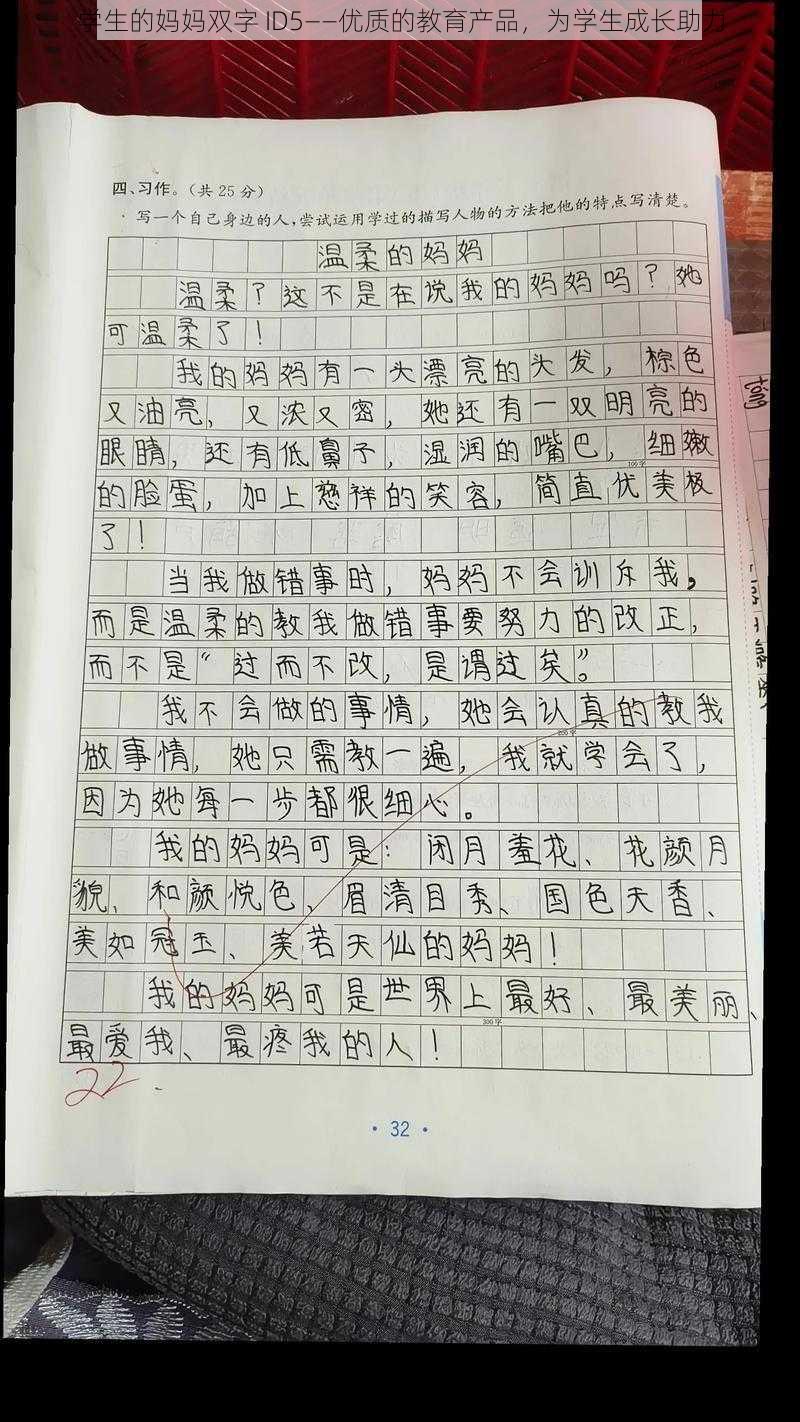 学生的妈妈双字 ID5——优质的教育产品，为学生成长助力
四、习作。（共 25 分）
· 写一个自己身边的人，尝试运用学过的描写人物的方法把他的特点写清楚。
温柔的妈妈
温柔？这不是在说我的妈妈吗？她
可温柔了！
我的妈妈有一头漂亮的头发，棕色
又油亮，又浓又密，她还有一双明亮的
眼睛，还有低鼻子，湿润的嘴巴，细嫩
100字
的脸蛋，加上慈祥的笑容，简直优美极
了！
当我做错事时，妈妈不会训斥我，
而是温柔的教我做错事要努力的改正，
而不是“过而不改，是谓过矣”。
我不会做的事情，她会认真的教我
200字
做事情，她只需教一遍，我就学会了，
因为她每一步都很细心。
我的妈妈可是：闭月羞花、花颜月
貌、和颜悦色、眉清目秀、国色天香、
美如冠玉、美若天仙的妈妈！
我的妈妈可是世界上最好、最美丽、
300字
最爱我、最疼我的人！
22
· 32 ·